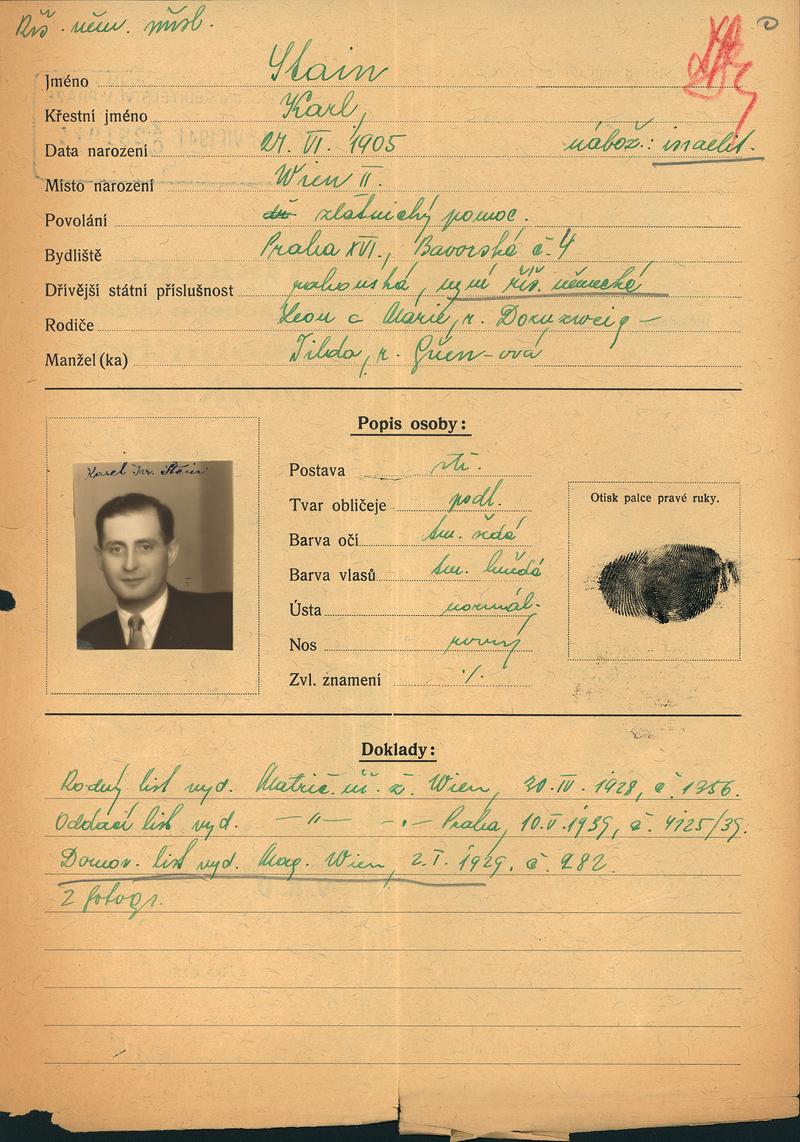 Říš. něm. přísl.
Jméno Stain
Křestní jméno Karl,
Data narození 27. VI. 1905 nábož.: israelit.
Místo narození Wien II.
Povolání zlatnický pomoc.
Bydliště Praha XVI., Bavorská č. 4
Dřívější státní příslušnost rakouská, nyní říš. německá
Rodiče Leon a Marie, r. Dornzweig
Manžel (ka) Tilda, r. Grün-ová
Popis osoby:
Karel Isr. Stein
Postava stř.
Tvar obličeje podl.
Barva očí tm. šedá
Barva vlasů tm. hnědá
Ústa normál.
Nos rovný
Zvl. znamení ./.
Otisk palce pravé ruky.
Doklady:
Rodný list vyd. Matrič. úř. ž. Wien, 20. IV. 1928, č. 1356.
Oddací list vyd. —"— —"— Praha, 10. V. 1939, č. 4125/39.
Domov. list vyd. Mag. Wien, 2. I. 1929. č. 282.
2 fotogr.